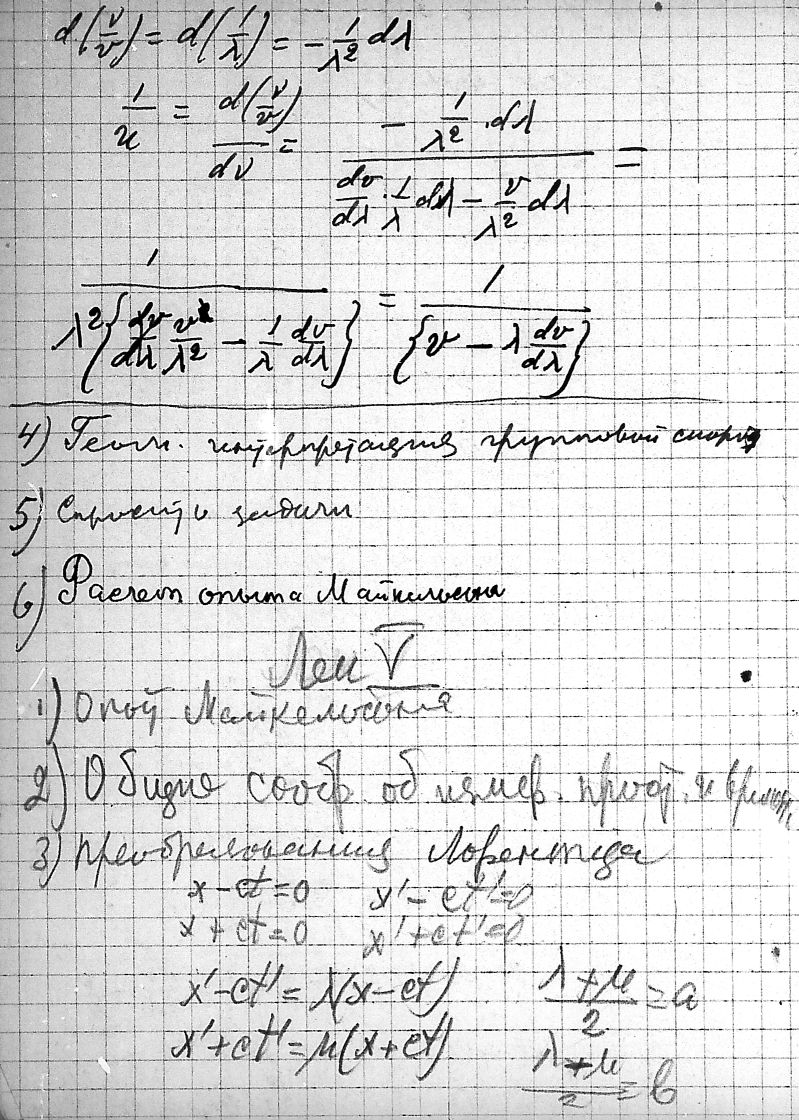 d(ν/v) = d(1/λ) = - 1/λ² dλ
1/u = d(ν/v)/dν = (- 1/λ² · dλ)/(dv/dλ · 1/λ dλ - v/λ² dλ) =
1/(λ²{dv/dλ v/λ² - 1/λ dv/dλ}) = 1/{v - λ dv/dλ}
4) Геом. интерпретация групповой скор
5) задачи
6) Расчет опыта Майкельсона
Лек V
1) Опыт Майкельсона
2) Общие сообр. об измер. прост. и времен.
3) Преобразования Лоренца
x - ct = 0 x' - ct' = 0
x + ct = 0 x' + ct' = 0
x' - ct' = λ(x - ct) (λ + μ)/2 = a
x' + ct' = μ(x + ct) (λ + μ)/2 = b